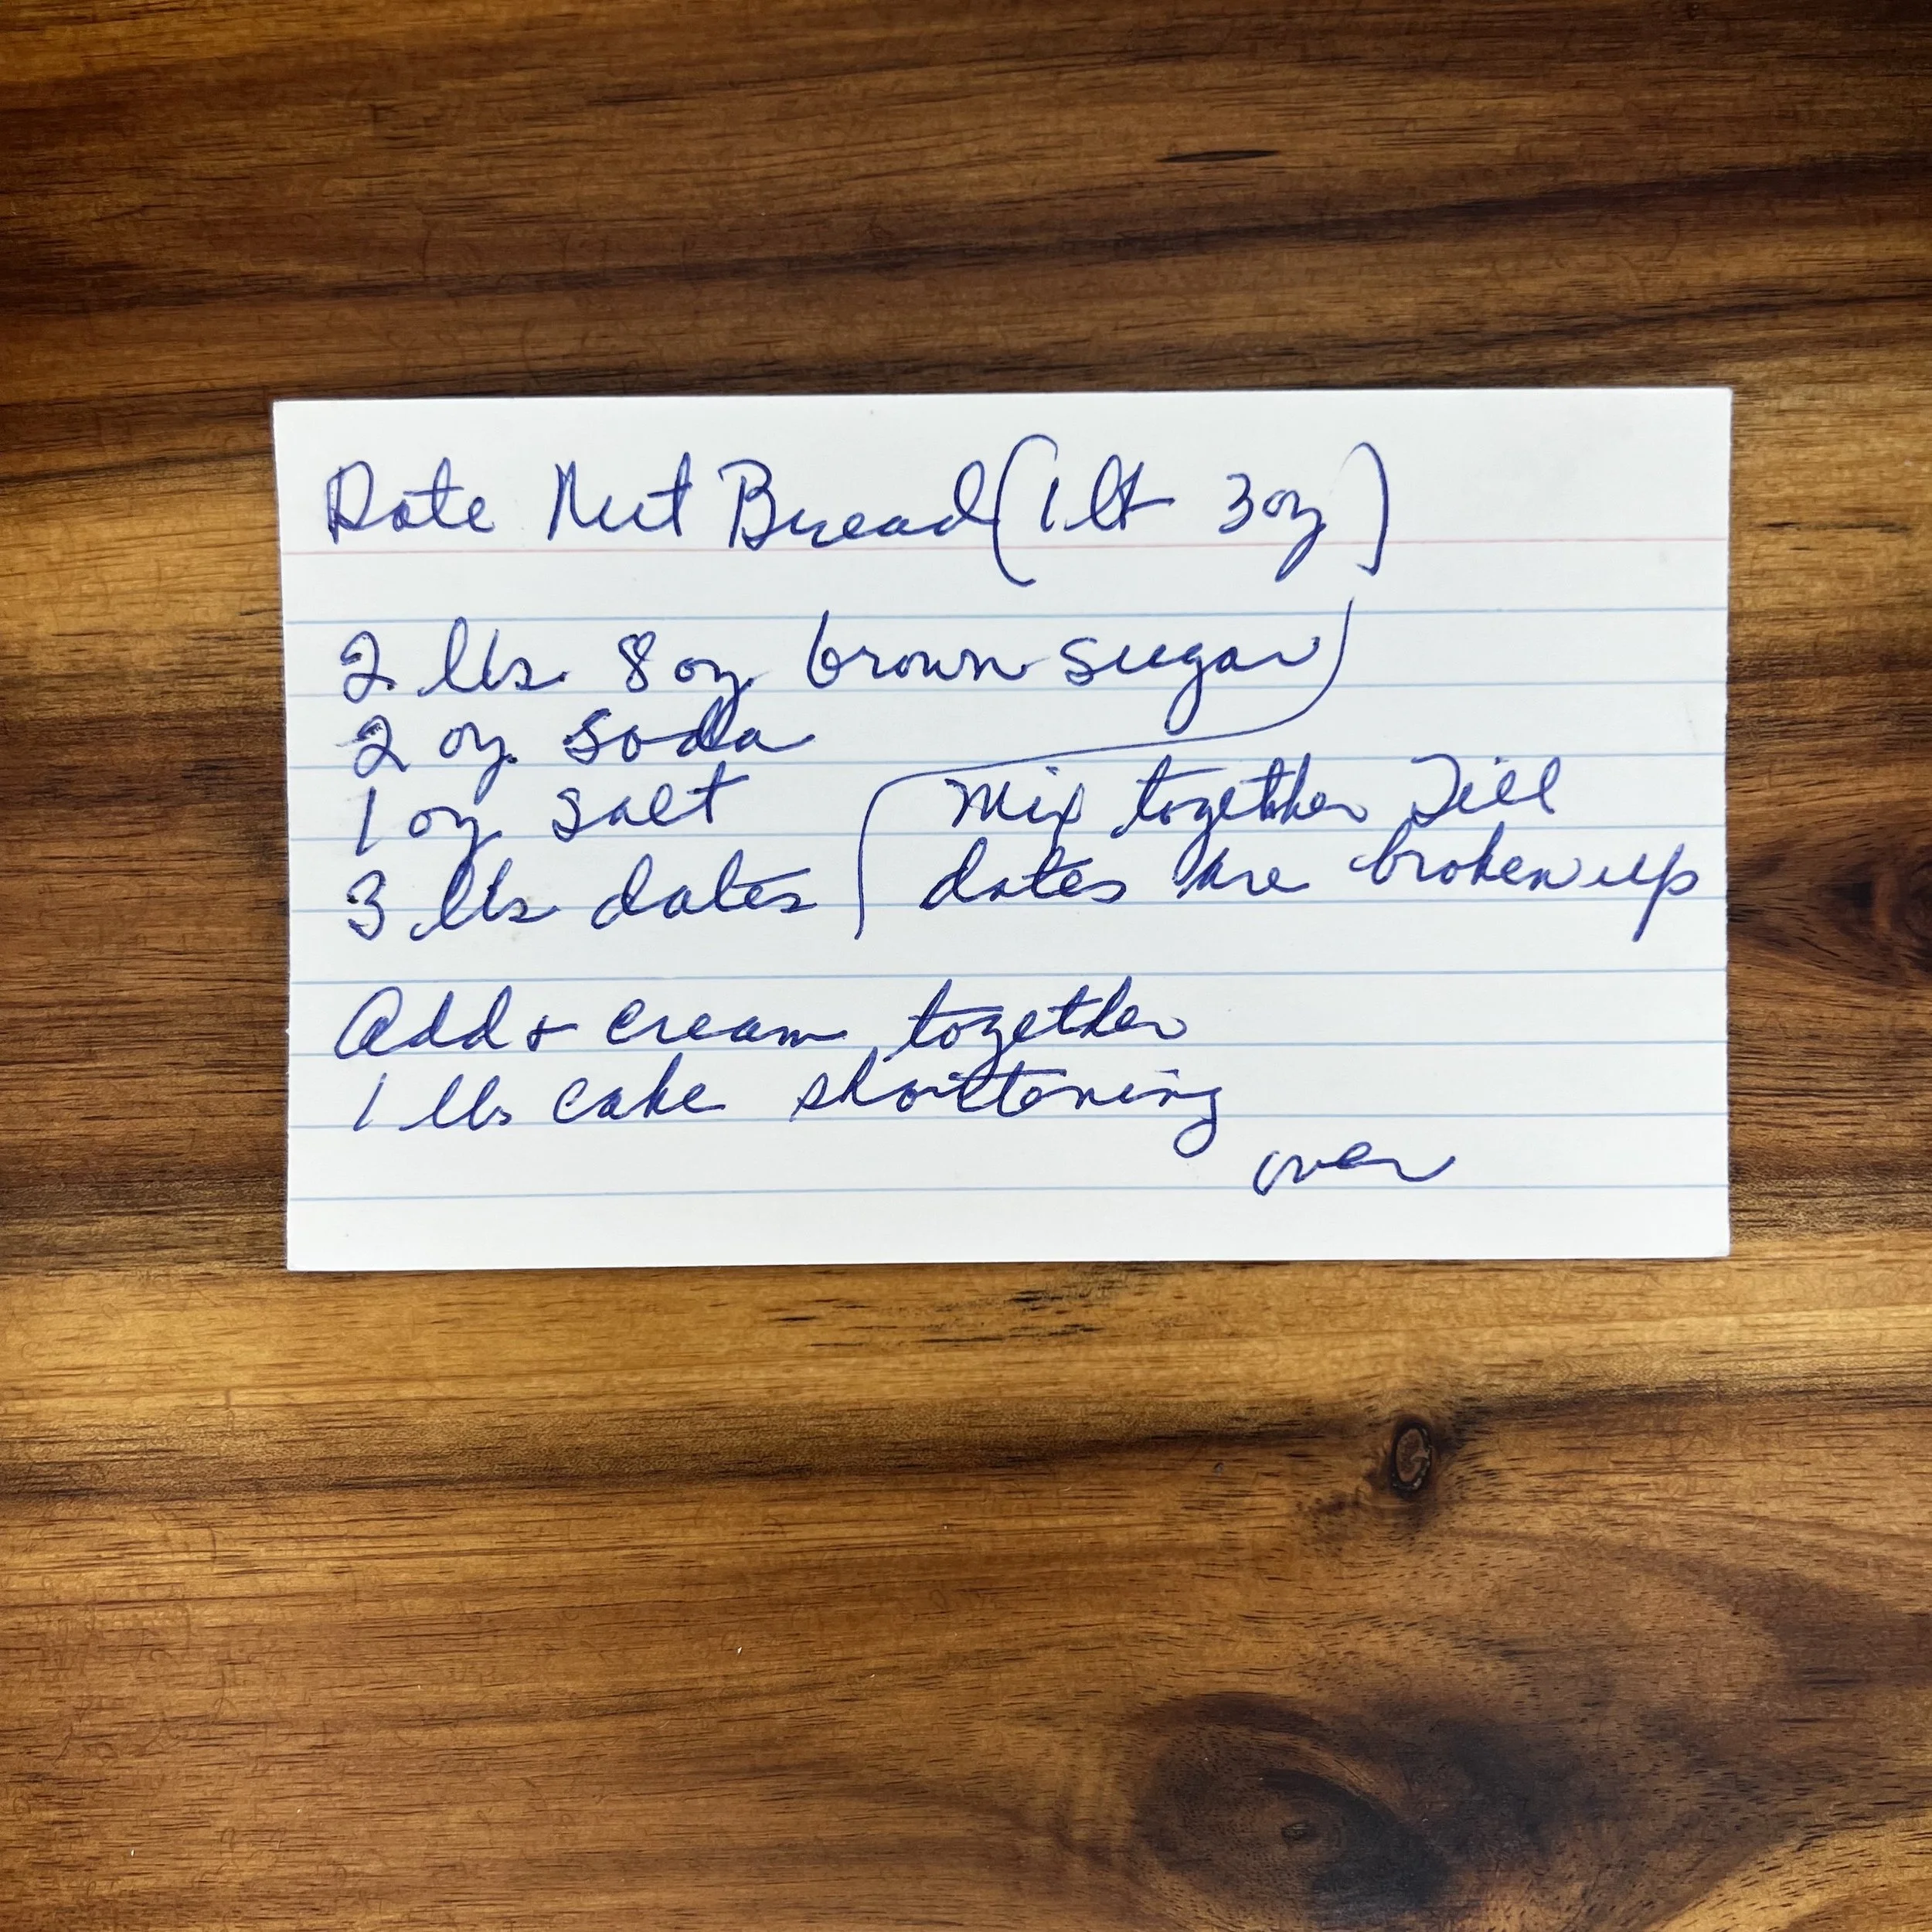 Date Nut Bread (1 lb 3 oz)
2 lbs. 8 oz. brown sugar
2 oz. soda
1 oz. salt
3 lbs dates
Mix together Till
dates are broken up
Add & cream together
1 lbs cake shortening
over